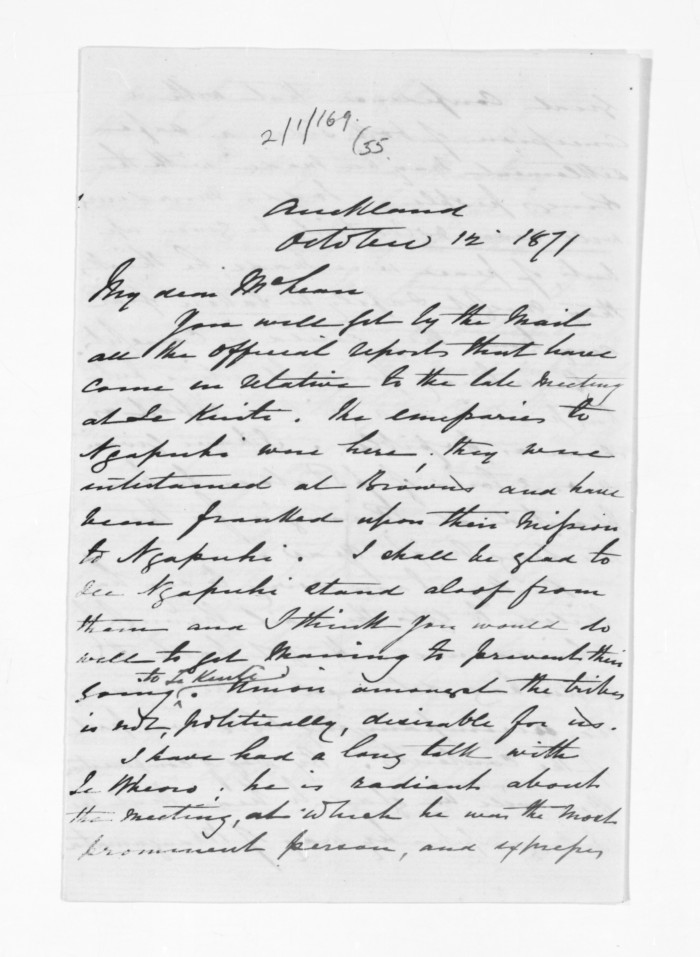 2/1/169.
(55.
Auckland
October 12 1871
My dear McLean
You will get by the Mail
all the official reports that have
come in relative to the late meeting
at Te Kuiti. The emissaries to
Ngapuhi were here, they were
entertained at Browns and have
been franked upon their mission
to Ngapuhi. I shall be glad to
see Ngapuhi stand aloof from
them and I think you would do
well to get Maning to prevent their
going ^ to Te Kuiti. Union amongst the tribes
is not, politically, desirable for us.
I have had a long talk with
Te Wheoro; he is radiant about
the meeting, at which he was the most
prominent person, and expresses